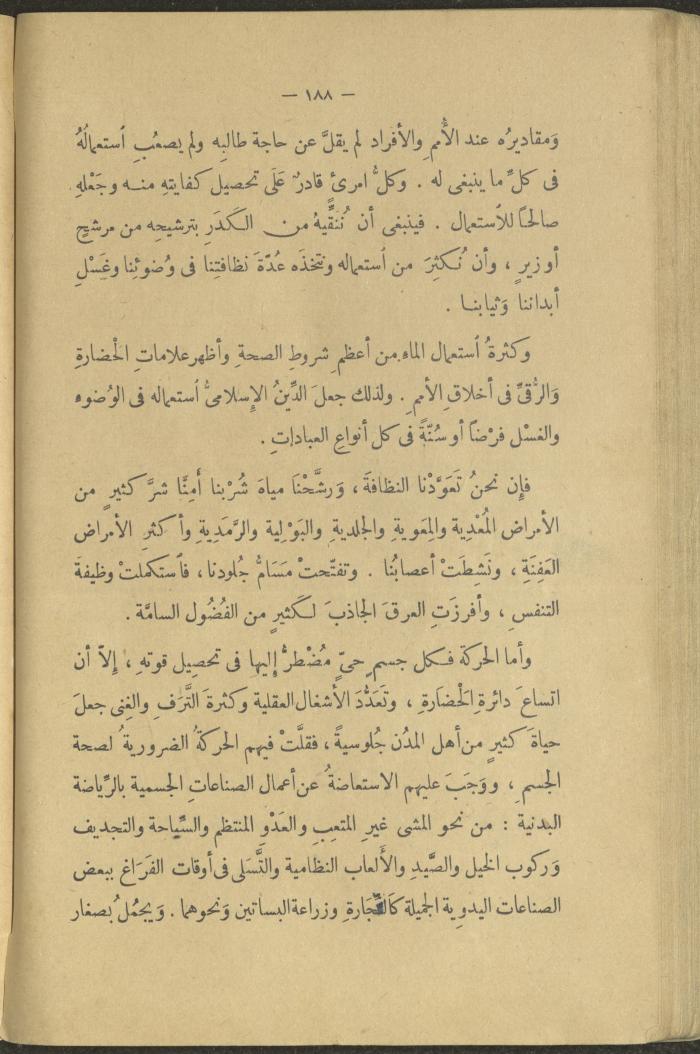 — ١٨٨ —
وَمقاديرُه عند الأُممِ والأفراد لم يقلَّ عن حاجة طالبِه ولم يصعُبِ ٱستعمالُهُ
فى كلِّ ما ينبغى له . وكلُّ امرئٍ قادرٌ عَلَى تحصيل كفايتهِ منه وجَعْلهِ
صالحًا للأستعمال . فينبغى أن نُنقِّيهُ من الكَدَرِ بترشيحِه من مرشحٍ
أو زيرٍ ، وأن نُكثِرَ من ٱستعماله ونتخذَه عُدّةَ نظافتِنا فى وُضوئِنا وغَسْلِ
أبداننا وَثيابنا .
وكثرةُ ٱستعمال الماءِ من أعظمِ شروطِ الصحةِ وأظهر علاماتِ الْحَضارةِ
وَالرُّقىِّ فى أخلاقِ الأممِ . ولذلك جعلَ الدِّينُ الإِسلامىُّ ٱستعماله فى الوُضوء
والغسْل فرْضاً أو سُنّةً فى كل أنواعِ العباداتِ .
فإن نحنُ تَعَوَّدْنا النظافةَ ، وَرشَّحْنَا مياهَ شُرْبنا أَمِنَّا شرَّ كثيرٍ من
الأمراض المُعْدِية والمِعَوية والجلدية والبَوْلية والرَّمَدِية وأكثرِ الأمراض
العَفِنَةِ ، ونَشِطَتْ أعصابُنا . وتفتّحتْ مَسَامُّ جُلودنا ، فٱستكملتْ وظيفةَ
التنفسِ ، وأفرزَتِ العرقَ الجاذبَ لكثيرٍ من الفُضُول السامَّة .
وأما الحركة فكل جسمٍ حىٍّ مُضْطرٌّ إليها فى تحصيل قوتهِ ، إِلاّ أن
اتساعَ دائرةِ الْحَضارَةِ ، وتَعَدُّدَ الأشغال العقلية وكثرةَ التَّرَفِ والغِنى جعلَ
حياةَ كثيرٍ من أهل المدُن جُلوسيةً ، فقلَّتْ فيهم الحركةُ الضرورية لصحة
الجسمِ ، ووَجَبَ عليهم الاستعاضةُ عن أعمال الصناعاتِ الجسمية بالرِّياضة
البدنية : من نحو المشى غيرِ المتعِبِ والعَدْوِ المنتظم والسِّباحة والتجديف
وَركوب الخيل والصَّيدِ والأَلعاب النظامية والتَّسَلى فى أوقات الفَرَاغ ببعض
الصناعات اليدوية الجميلة كالنِّجَارةِ وزراعة البساتين وَنحوهما . وَيجمُلُ بصغار